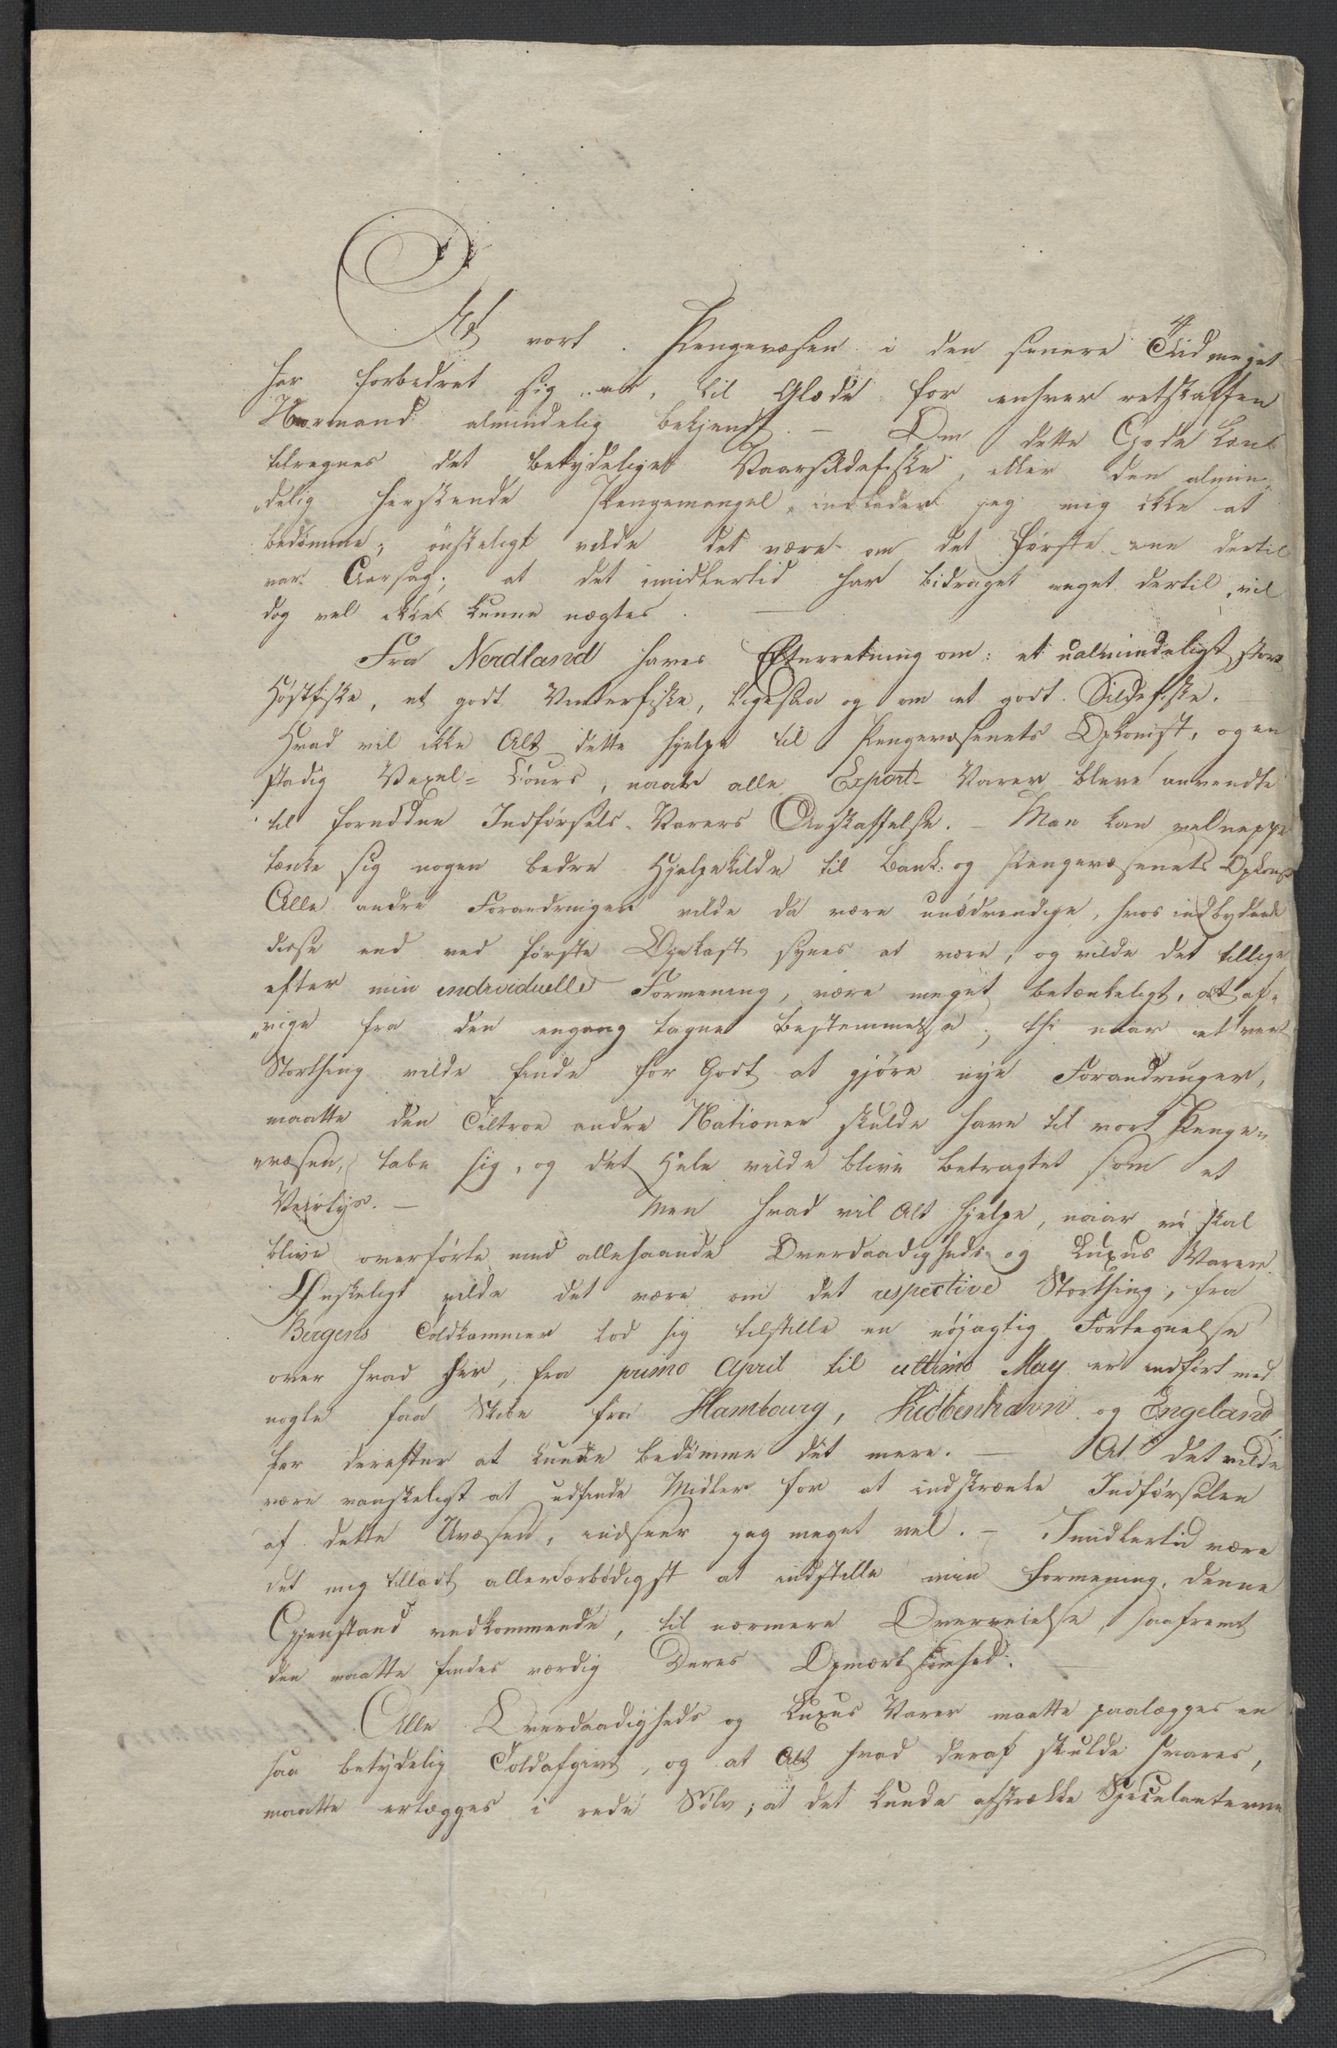 At vort Pengevæsen i den senere Tiid meget
har forbedret sig er, til Glæde for enhver retskaffen
Normand almindelig bekjendt. — Om dette Gode kan
tilregnes det betydelige Vaarsildefiske, eller den almin„
„delig herskende Pengemangel, indlader jeg mig ikke at
bedømme; ønskeligt vilde det være om det første ene dertil
var Aarsag; at det imidlertid har bidraget meget dertil, vil
dog vel ikke kunne nægtes. —
Fra Nordland haves Efterretning om: et ualmindeligt stort
Høstfiske, et godt Vinterfiske, ligesaa og om et godt Sildefiske. —
Hvad vil ikke Alt dette hjelpe til Pengevæsenets Opkomst, og en
stadig Vexel-Cours, naar alle Export-Varer bleve anvendte
til fornødne Indførsels-Varers Anskaffelse. — Man kan vel neppe
tænke sig nogen bedre Hjelpekilde til Bank- og Pengevæsenets Opkomst
Alle andre Forandringer vilde da være unødvendige, hvor indbydende
disse end ved første Øyekast synes at være, og vilde det tillige
efter min individuelle Formening, være meget betænkeligt, at af„
„vige fra den engang tagne Bestemmelse; thi naar et nyt
Storthing vilde finde for Godt at gjøre nye Forandringer,
maatte den Tiltroe andre Nationer skulde have til vort Penge„
„væsen, tabe sig, og det Hele vilde blive betragtet som et
Veirlys. — Men hvad vil Alt hjelpe, naar vi skal
blive overførte med allehaande Overdaadigheds og Luxus Varer
Ønskeligt vilde det være om det respective Storthing, fra
Bergens Toldkammer lod sig tilstille en nøjagtig Fortegnelse
over hvad her, fra primo April til ultimo May er indført med
nogle faa Skibe fra Hambourg, Kiöbenhavn og Engeland,
for derefter at kunde bedømme det mere. — At det vilde
være vanskeligt at udfinde Midler for at indskrænke Indførselen
af dette Uvæsen, indseer jeg meget vel. — Imidlertid være
det mig tilladt allerærbødigst at indstille min Formening, denne
Gjenstand vedkommende, til nærmere Overveielse, saafremt
den maatte findes værdig Deres Opmærksomhed. —
Alle Overdaadigheds og Luxus Varer maatte paalægges en
saa betydelig Toldafgivt, og at Alt hvad deraf skulde svares,
maatte erlægges i rede Sølv; at det kunde afskrække Speculanterne